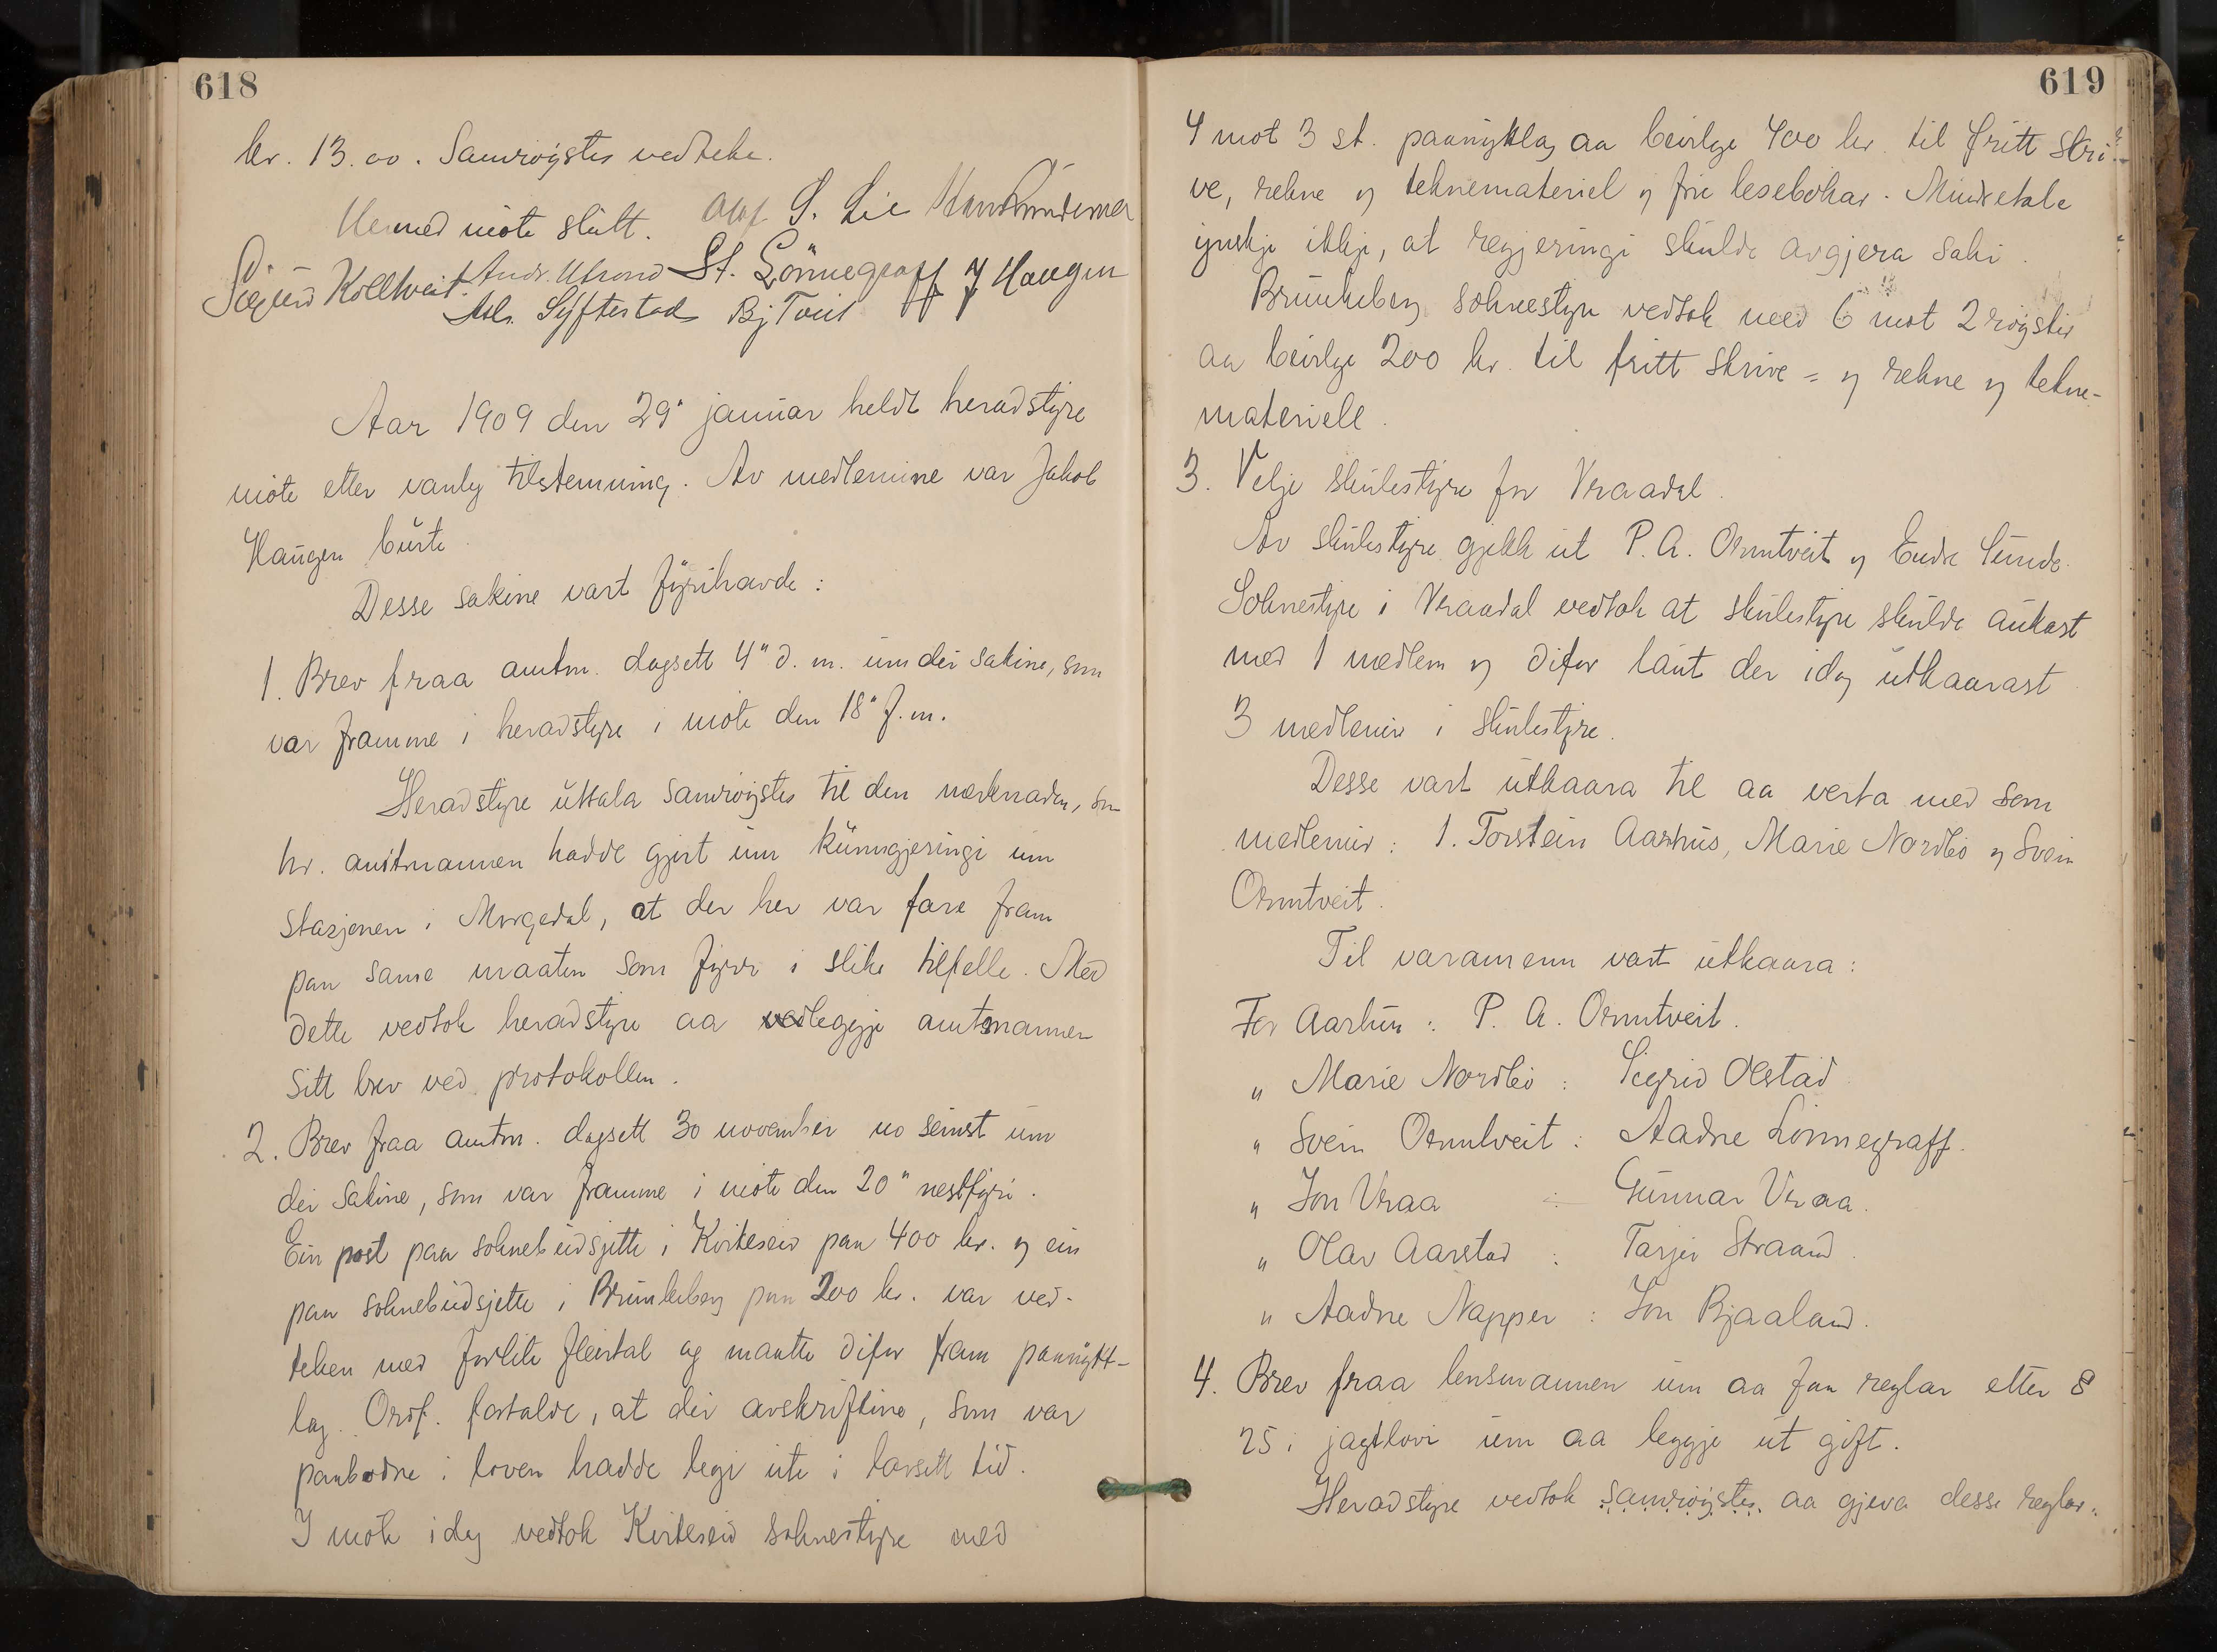 618
kr. 13.00. Samrøystes vedteke.
Hermed møte slutt. Olaf S. Lie
Sigurd Kolltveit. Andr. Utsond St. Lönnegraff J Haugen
Asl. Syftestad Bj Tveit
Aar 1909 den 29" januar heldt heradstyre
møte etter vanleg tilstemning. Av medlemine var Jakob
Haugen burte
Desse sakine vart fyrihavde :
1. Brev fraa amtm. dagsett 4" d. m. um dei sakine, som
var framme i heradstyre i møte den 18" f. m.
Heradstyre uttala samrøystes til den merknaden, som
hr. amtmannen hadde gjort um kunngjeringi um
stasjonen i Morgedal, at der her var fare fram
paa same maaten som fyrr i slike tilfelle. Med
dette vedtok heradstyre aa leggje amtsmannen
sitt brev ved protokollen.
2. Brev fraa amtm. dagsett 30 november no seinst um
dei sakine, som var framme i møte den 20" nestfyri.
Ein post paa soknebudsjette i Kviteseid paa 400 kr. og ein
paa soknebudsjette i Brunkeberg paa 200 kr. var ved-
teken med forlite fleirtal og maatte difor fram paanytt-
lag. Ordf. fortalde, at dei avskriftine, som var
paabodne i loven hadde legi ute i lovsett tid.
I møte idag vedtok Kviteseid soknestyre med
619
4 mot 3 st. paanyttlag aa løyvlge 400 kr. til fritt skri-
ve, rekne og teknemateriel og frie lesebøkar. Mindretale
ynskje ikkje, at regjeringi skulde avgjera saki.
Brunkeberg soknestyre vedtok med 6 mot 2 røyster
aa løyvlge 200 kr. til fritt skrive = og rekne og tekne-
materiell.
3. Velje skulestyre for Vraadal.
Av skulestyre gjekk ut P. A. Ormtveit og Endre Sunde.
Soknestyre i Vraadal vedtok at skulestyre skulde aukast
med 1 medlem og difor laut der idag utkaarast
3 medlemer i skulestyre.
Desse vart utkaara til aa verta med som
medlemer : 1. Torstein Aarhus, Marie Nordbø og Svein
Ormtveit.
Til varamenn vart utkaara :
For Aarhus : P. A. Ormtveit.
" Marie Nordbø : Sigrid Olstad
" Svein Ormtveit : Aadne Lönnegraff.
" Jon Vraa : Gunnar Vraa.
" Olav Aarstad : Tarjei Straand.
" Aadne Napper : Jon Bjaaland.
4. Brev fraa lensmannen um aa faa reglar etter §
25 i jagtlovi um aa leggje ut gift.
Heradstyre vedtok samrøystes aa gjeva desse reglar :